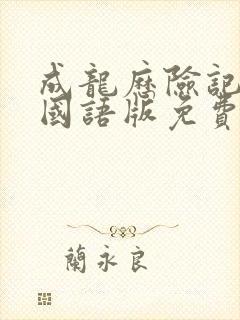 成龍歷險記
國語版免費
蘭永良